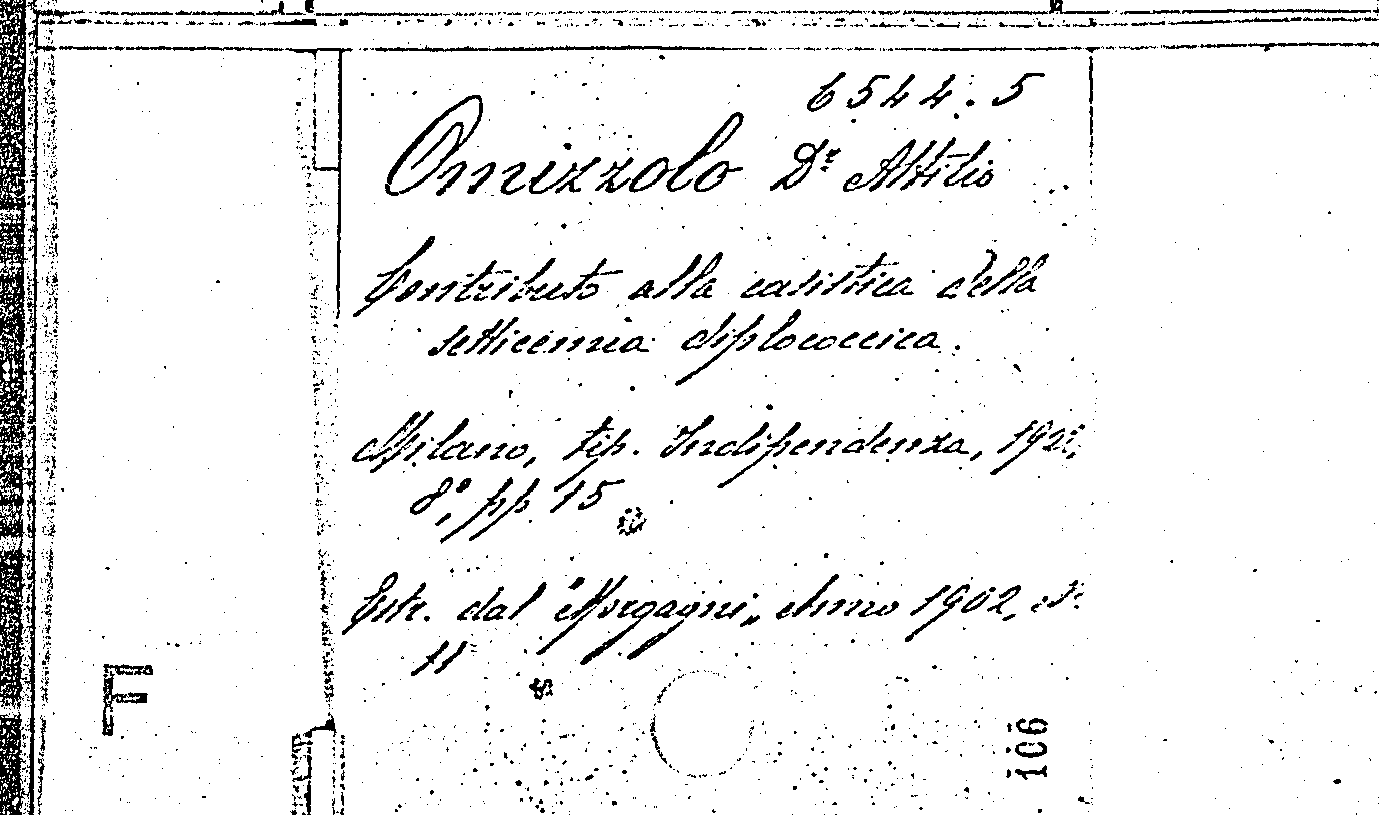 6544.5
Omizzolo Dr Attilio
Contributo alla casistica della
setticemia diplococcica.
Milano, tip. Indipendenza,
8°, pp. 15
Estr. dal "Morgagni„ Anno 1902, N.
11
F
106